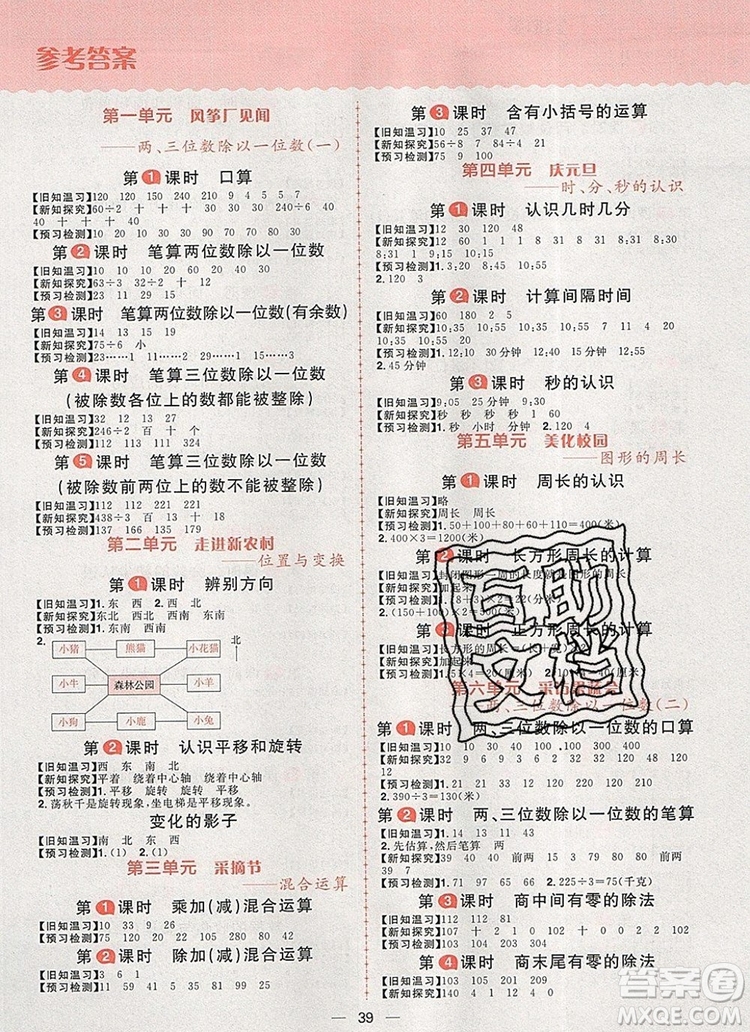 参考答案
第一单元 风筝厂见闻
——两、三位数除以一位数(一)
第1课时 口算
【旧知温习】120 120 160 240 210 9 4 5 5 7
【新知探究】60÷2 十 十 十 30 十 十 240÷2 十 十 40
40 十 十 十 40
【预习检测】10 23 10 220 230 110
第2课时 笔算两位数除以一位数
【旧知温习】10 10 20 10 20 210
【新知探究】54÷2 235÷2 十 12
【预习检测】23 11 29 15
第3课时 笔算两位数除以一位数(有余数)
【旧知温习】14 13 15 19
【新知探究】64÷3 十 小
【预习检测】23……1 22……1 17……3 11……1
第4课时 笔算三位数除以一位数
(被除数各位上的数都能被整除)
【旧知温习】32 12 13 27
【新知探究】243÷2 百 十 个
【预习检测】112 131 111 324
第5课时 笔算三位数除以一位数
(被除数前两位上的数不能被整除)
【旧知温习】112 111 110 223
【新知探究】438÷3 百 十 个
【预习检测】137 166 135 179
第二单元 走进新农村
——位置与变换
第1课时 辨别方向
【旧知温习】1.东 西 2.西 北
【新知探究】东北 西北 西南 东南
【预习检测】1.东北 西南
2.
小猪 熊猫 小花猫 北
小牛 森林公园 小羊
小狗 小鹿 小兔
第2课时 认识平移和旋转
【旧知温习】西 东南 东 西北
【新知探究】平着 绕着中心轴 绕着中心轴
【预习检测】1.平移 旋转 旋转 平移
2.荡秋千是旋转现象,坐电梯是平移现象。
变化的影子
【旧知温习】南 北 东 西
【预习检测】1.(1) 2.(1)
第三单元 采摘节
——混合运算
第1课时 乘加(减)混合运算
【旧知温习】15 6 16 7 18 4
【预习检测】75 220 105 280 78 142
第2课时 除加(减)混合运算
【旧知温习】3 6 1
【预习检测】57 15 54 19 90 82
第3课时 含有小括号的运算
【旧知温习】10 25 37 47
【新知探究】56÷8 7 56÷8 7
【预习检测】75 9 100
第四单元 庆元旦
——时、分、秒的认识
第1课时 认识几时几分
【旧知温习】12 30 120 48
【新知探究】12 60 60 1 1 8 31 8 31 8:31
8:31 9 55 9:55
【预习检测】1.3:35 7:15 10:35 6:20
2.120 3
第2课时 计算间隔时间
【旧知温习】60 180 5 2
【新知探究】10:35 10:55 20 10:35 4 5 20
10:35 10:55 20
【预习检测】1.10:15 30分钟 12:35 15分钟
2.45分钟
第3课时 秒的认识
【旧知温习】9:05 25分钟 9:30
【新知探究】秒 秒 秒 秒 1 60
【预习检测】1.秒 小时 分钟 秒 2.2 240
第五单元 美化校园
——图形的周长
第1课时 周长的认识
【旧知温习】略
【新知探究】周长
【预习检测】1.50+100+80+50+120=400(米)
2.400×3=1200(米)
第2课时 长方形周长的计算
【新知探究】加起来
2.(150+100)×2=500(米)
第3课时 正方形周长的计算
【新知探究】加起来
第六单元
——两、三位数除以一位数(二)
第1课时 两、三位数除以一位数的口算
【预习检测】1.21 31 23 220 230 120 130
2.390÷3=130(米)
第2课时 两、三位数除以一位数的笔算
【旧知温习】1.14 13 11 43
2.先估算,然后笔算 两
【新知探究】39 40 39 前两 两 商 3 27 27
39 7
【预习检测】1.71 97 65 66 2.225÷3=75(千克)
第3课时 商中间有零的除法
【旧知温习】112 112 81
【新知探究】107 十 2 102 十 0 102
【预习检测】103 104 102 109
第4课时 商末尾有零的除法
【旧知温习】104 103 204
39
互助文档
答案圈
MXQE.COM